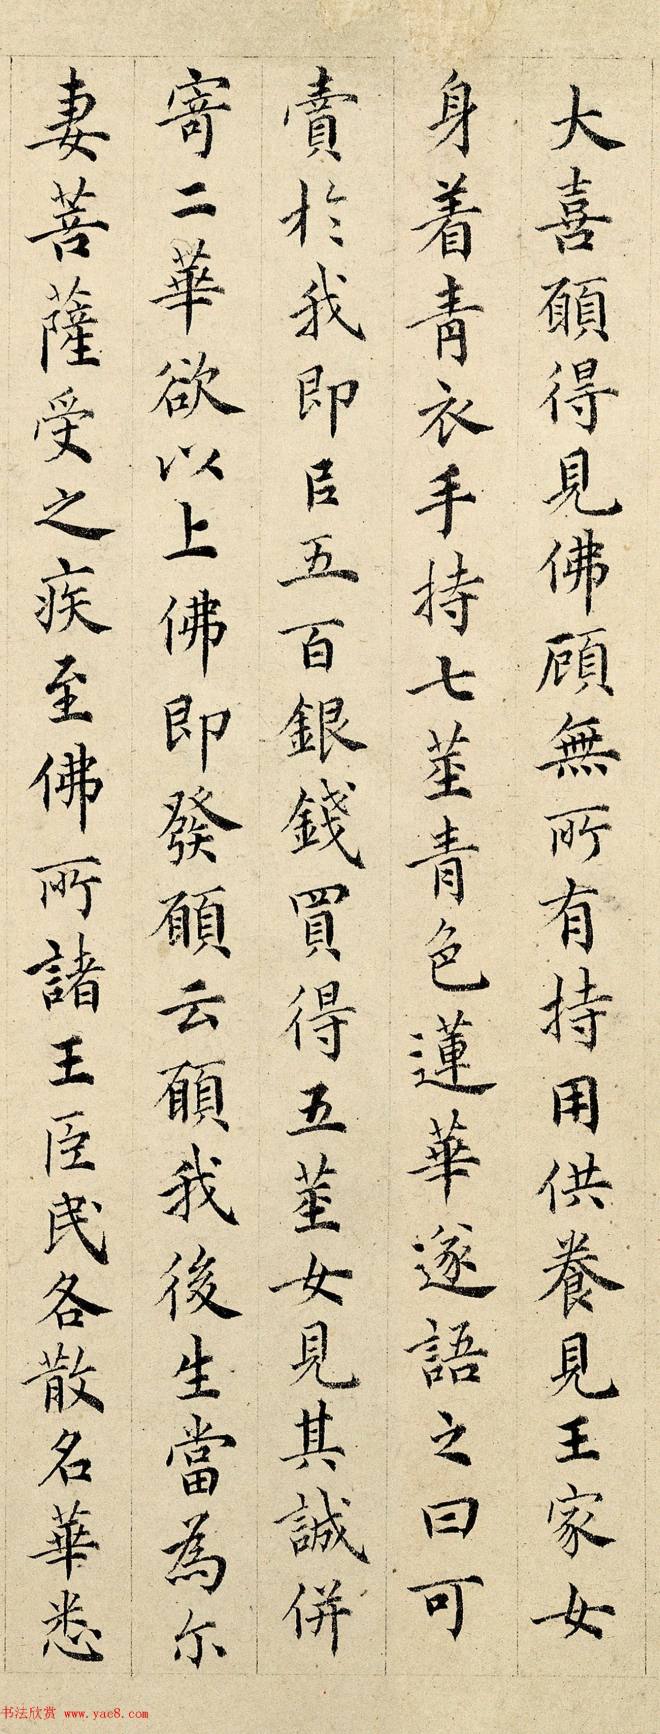 大喜願得見佛顧無所有持用供養見王家女
身着青衣手持七莖青色蓮華遂語之曰可
賣於我即以五百銀錢買得五莖女見其誠併
寄二華欲以上佛即發願云願我後生當為尔
妻菩薩受之疾至佛所諸王臣民各散名華悉
书法欣赏 www.yac8.com